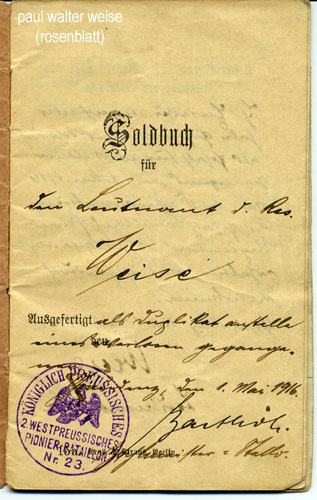 paul walter weise
(rosenblatt)
Soldbuch
für
den Leutnant d. Res.
Weise
Ausgefertigt als Duplikat anstelle
eines verloren gegange-
den 1. Mai 1916.
KÖNIGLICH PREUSSISCHES
2 WESTPREUSSISCHES
PIONIER-BATAILLON
Nr. 23.